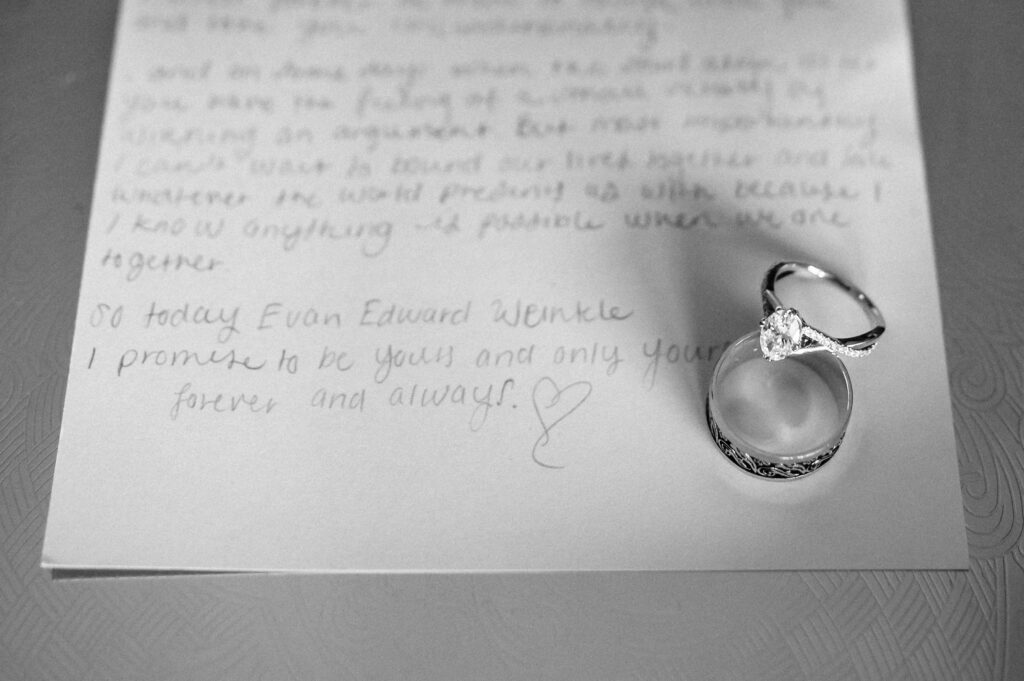 and on some days when the
you have the feeling of
winning an argument But most importantly
I can't wait to bound our lives together and
whatever the world presents us with because I
I know anything is possible when we are
together
So today Evan Edward Weinkle
I promise to be yours and only yours
forever and always.